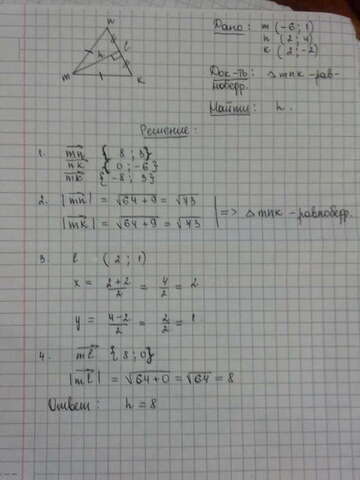 n
h
l
m
к
Дано: m (-6; 1)
n (2; 4)
к (2; -2)
Док-ть: △mnк -рав-
нобедр.
Найти: h.
Решение:
1. mn {8; 3}
nк {0; -6}
mк {-8; 3}
2. |mn| = √64+9 = √73
|mк| = √64+9 = √73
=> △mnк -равнобедр.
3. l (2; 1)
x = 2+2/2 = 4/2 = 2
y = 4-2/2 = 2/2 = 1
4. ml {8; 0}
|ml| = √64+0 = √64 = 8
Ответ: h = 8